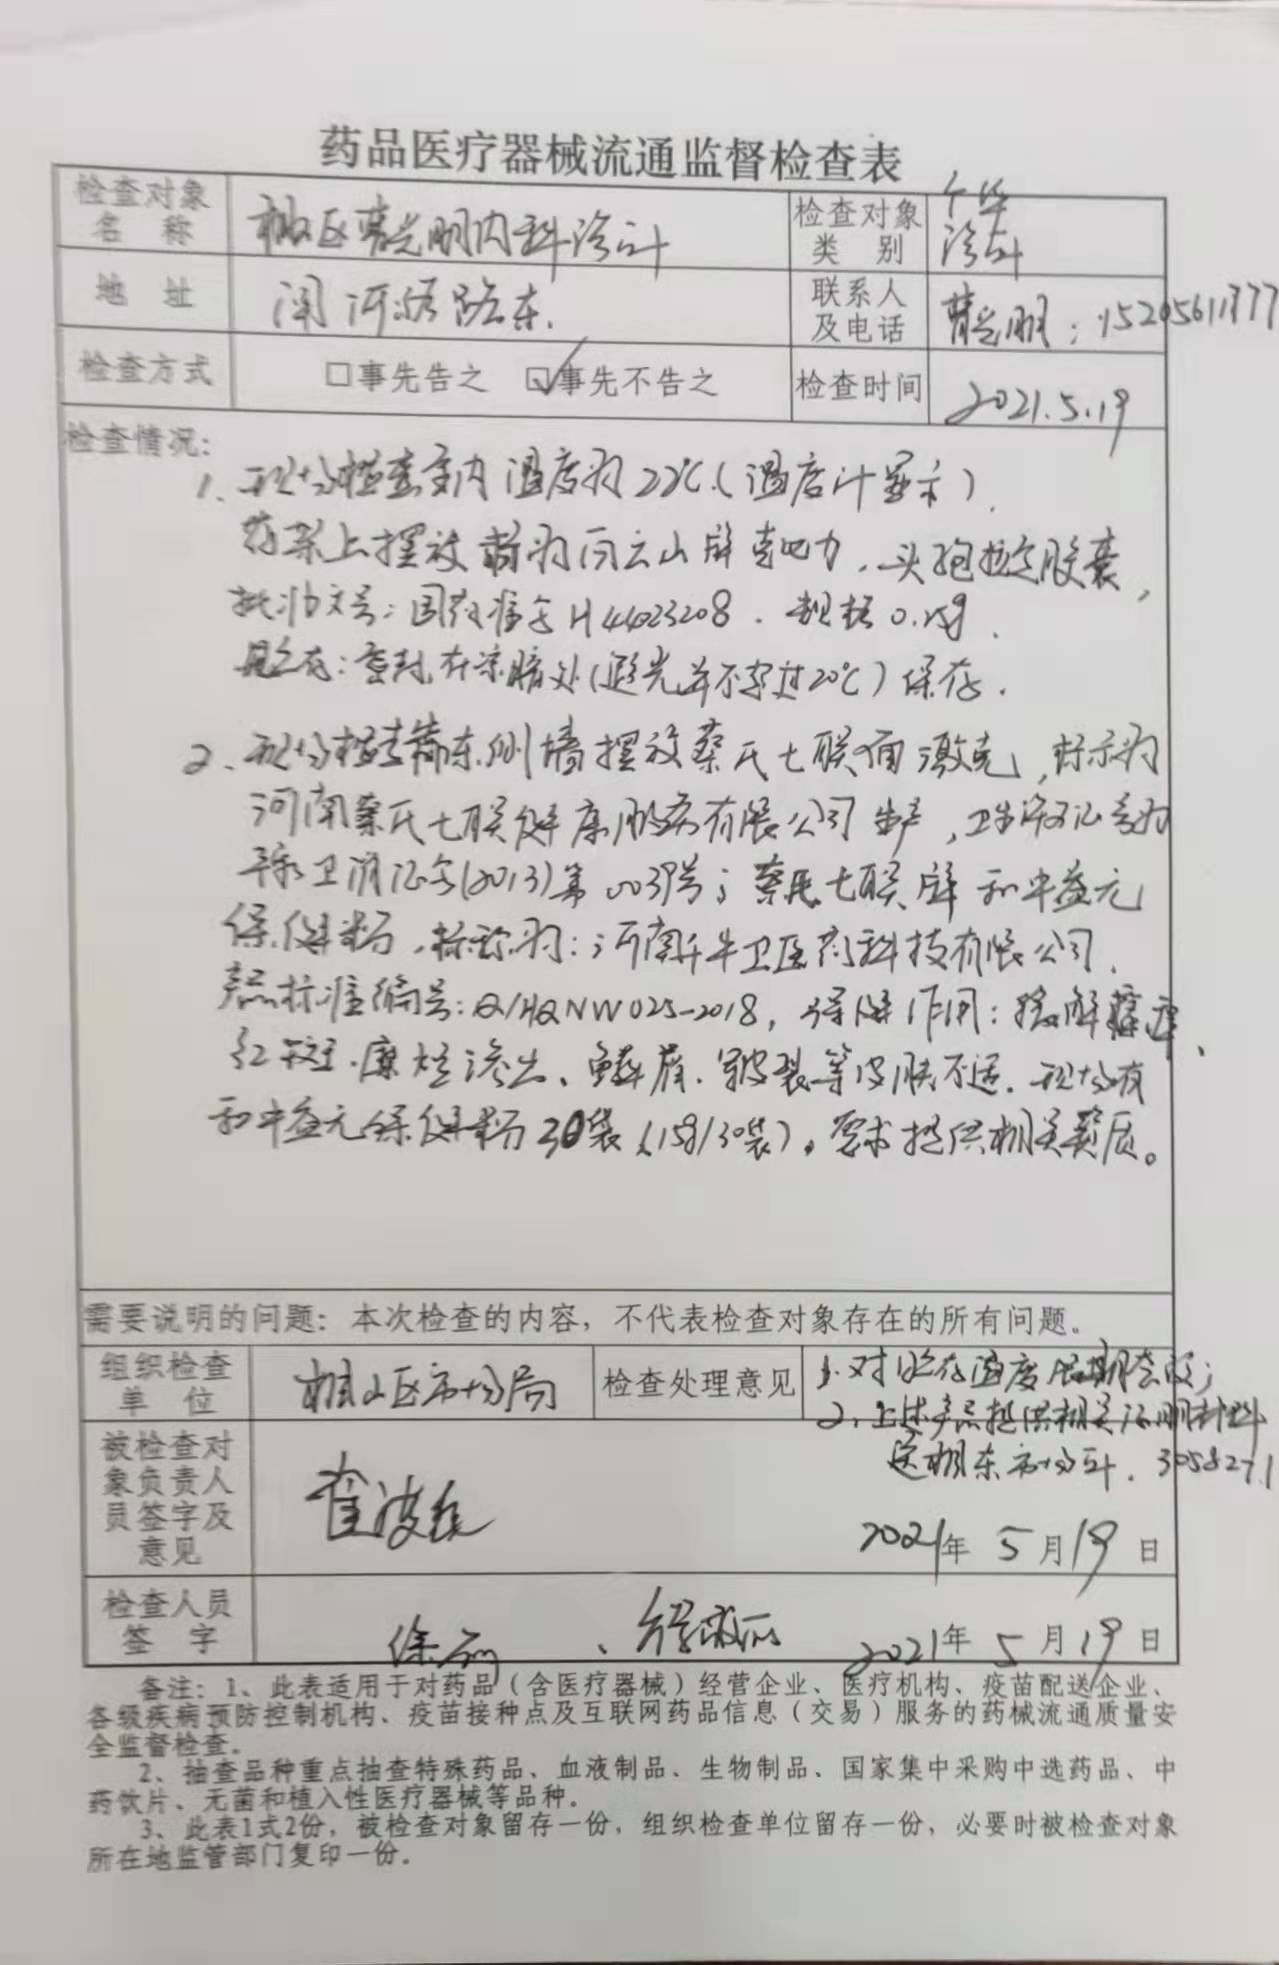 药品医疗器械流通监督检查表
检查对象
名 称
区曹光明内科诊所
检查对象
类 别
个体
诊所
地 址
闸河路路东.
联系人
及电话
曹光明:
检查方式
□事先告之 ☑事先不告之
检查时间
2021.5.19
检查情况:
1、现场检查室内温度为22℃(温度计显示).
药架上摆放 白云山 头孢 胶囊,
批准文号:国药准字H44023208. 规格0.
贮存:密封,在凉暗处(避光并不超过20℃)保存.
2、现场检查 东侧墙摆放蔡氏七联 激克,标示为
河南蔡氏七联健康 有限公司生产,卫生许可证号为
豫卫消证字(2013)第0039号;蔡氏七联牌和中益元
保健粉,标称为:河南千年卫医药科技有限公司,
产品标准编号:Q/HQNW025-2018,保健作用:缓解瘙痒、
红斑、糜烂渗出、鳞屑、皲裂等皮肤不适.现场有
和中益元保健粉30袋(15g/30袋)。要求提供相关资质。
需要说明的问题:本次检查的内容,不代表检查对象存在的所有问题。
组织检查
单 位
相山区市场局
检查处理意见
1.对贮存温度限期整改;
2、上述产品提供相关证明材料
送相东市场所.
被检查对
象负责人
员签字及
意见
2021年 5 月 19 日
检查人员
签 字
徐
2021年 5 月 19 日
备注:1、此表适用于对药品(含医疗器械)经营企业、医疗机构、疫苗配送企业、
各级疾病预防控制机构、疫苗接种点及互联网药品信息(交易)服务的药械流通质量安
全监督检查。
2、抽查品种重点抽查特殊药品、血液制品、生物制品、国家集中采购中选药品、中
药饮片、无菌和植入性医疗器械等品种。
3、此表1式2份,被检查对象留存一份,组织检查单位留存一份,必要时被检查对象
所在地监管部门复印一份.